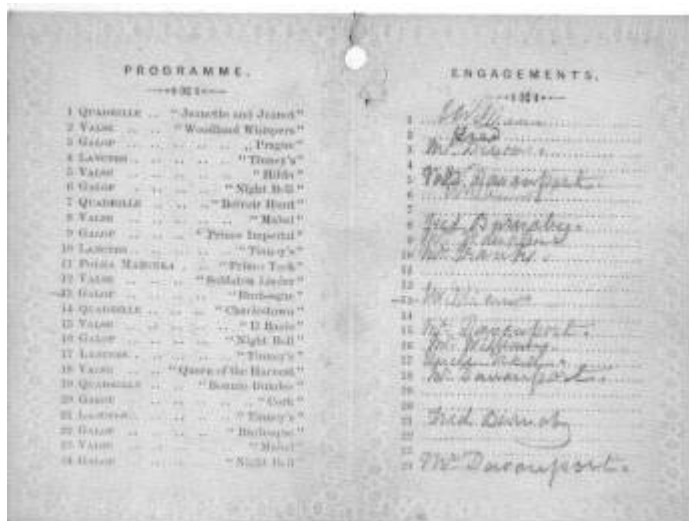 PROGRAMME.
1 QUADRILLE .. "Jeanette and Jeanot"
2 VALSE .. .. "Woodland Whispers"
3 GALOP .. .. .. .. "Prague"
4 LANCERS .. .. .. .. "Tinney's"
5 VALSE .. .. .. .. "Hilda"
6 GALOP .. .. .. "Night Bell"
7 QUADRILLE .. ..
8 VALSE .. .. .. .. "Mabel"
9 GALOP .. .. "Prince Imperial"
10 LANCERS .. .. .. "Tinney's"
11 POLKA MAZURKA ..
12 VALSE .. .. "Soldaten Lieder"
13 GALOP .. .. .. "Burlesque"
14 QUADRILLE .. .. "Charlestown"
15 VALSE .. .. .. "Il Bacio"
16 GALOP .. .. .. "Night Bell"
17 LANCERS .. .. .. "Tinney's"
18 VALSE .. "Queen of the Harvest"
19 QUADRILLE ..
20 GALOP .. .. .. .. "Cork"
21 LANCERS .. .. .. "Tinney's"
22 GALOP .. .. .. "Burlesque"
23 VALSE .. .. .. .. "Mabel"
24 GALOP .. .. .. "Night Bell"
ENGAGEMENTS.
1
2 Fred
3 Mr.
4
5 Davenport.
6
7
8 Fred Burnaby.
9
10 Mr. Franks.
11
12
13 Williams
14
15 Mr. Davenport.
16 Mr.
17 Uncle
18 Mr. Davenport.
19
20
21 Fred Burnaby
22
23
24 Mr Davenport.